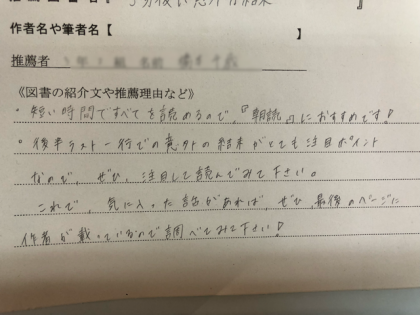 5分後に意外な結末 』
作者名や筆者名【 】
推薦者 年 組 名前
《図書の紹介文や推薦理由など》
・短い時間ですべてを読めるので、『朝読』におすすめです!
・後半ラスト一行での意外の結末がとても注目ポイント
なので、ぜひ、注目して読んでみて下さい。
これで、気に入った話があれば、ぜひ、最後のページに
作者が載っているので調べてみて下さい!